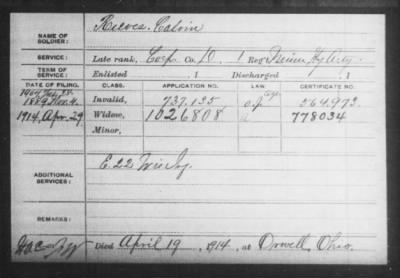 NAME OF SOLDIER: Reeves, Calvin
SERVICE: Late rank, Corp. Co. D, 1 Reg't Minn Hy Arty.
TERM OF SERVICE: Enlisted , 1 Discharged , 1
DATE OF FILING. CLASS. APPLICATION NO. LAW. CERTIFICATE NO.
1889 Nov. 4. Invalid, 737.135 564.973.
1914, Apr. 29. Widow, 1026808 778034
Minor,
ADDITIONAL SERVICES: E. 22 Wis Inf.
REMARKS:
Died April 19, 1914, at Orwell, Ohio.